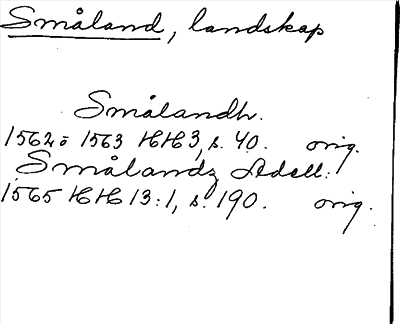 Småland, landskap
Smålandh.
1562 = 1563 HH 3, s. 40. orig.
Smålandz Adell.
1565 HH 13:1, s. 190. orig.